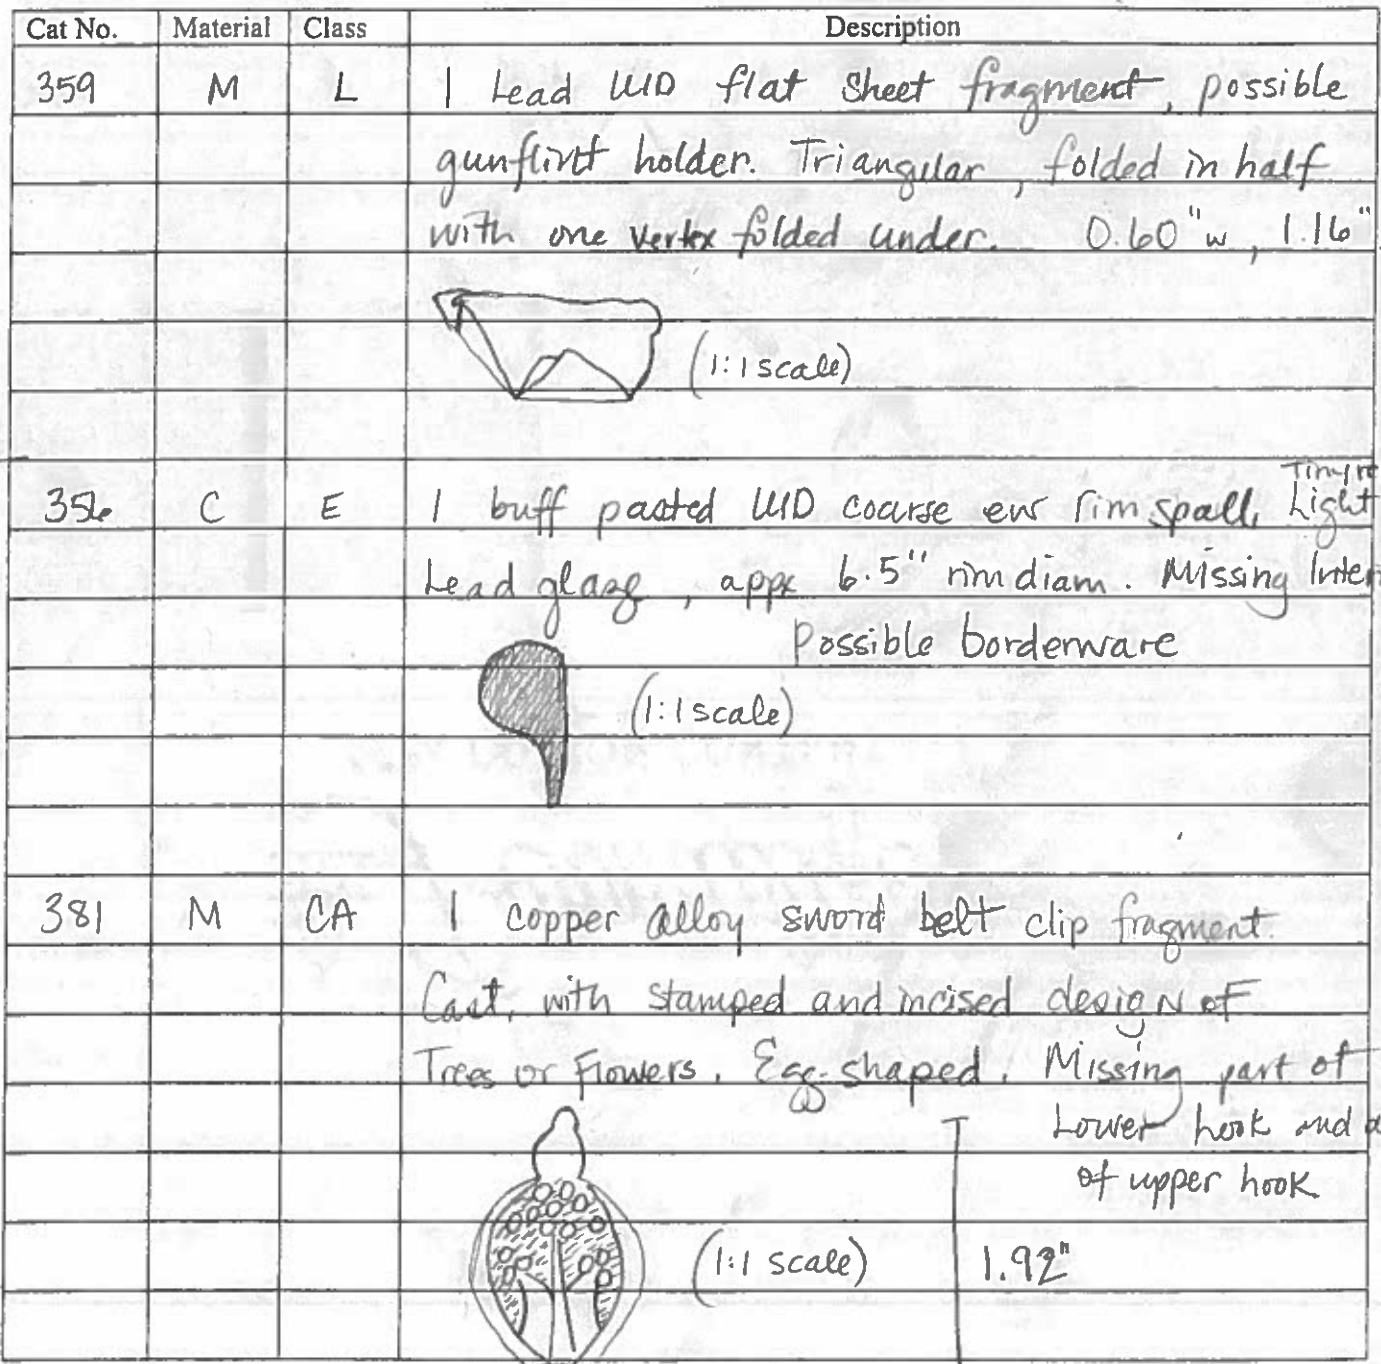 Cat No. Material Class Description
359 M L 1 Lead UID flat sheet fragment, possible
gunflint holder. Triangular, folded in half
with one vertex folded under. 0.60" w, 1.16"
(1:1 scale)
356 C E 1 buff pasted UID coarse ew rim spall, Light
Lead glaze, appx 6.5" rim diam. Missing Inter
Possible borderware
(1:1 scale)
381 M CA 1 Copper alloy sword belt clip fragment.
Cast, with stamped and incised design of
Trees or Flowers. Egg-shaped. Missing part of
Lower hook and a
of upper hook
(1:1 scale) 1.92"